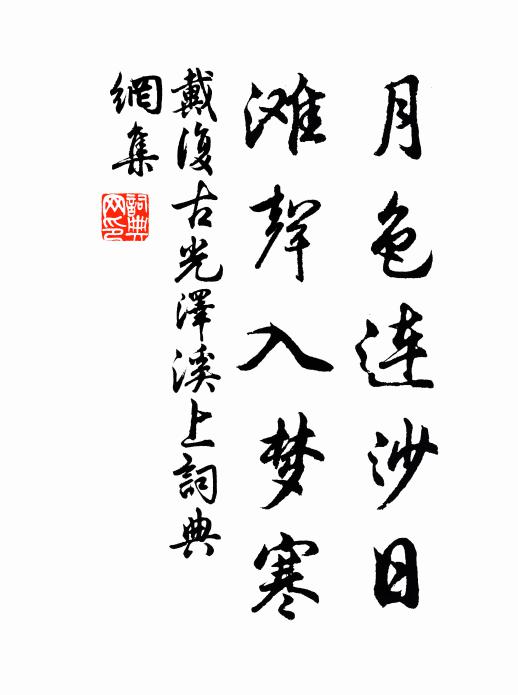 月色連沙日
滩聲入梦寒
戴復古光澤溪上詞典
網集
詞典
网印